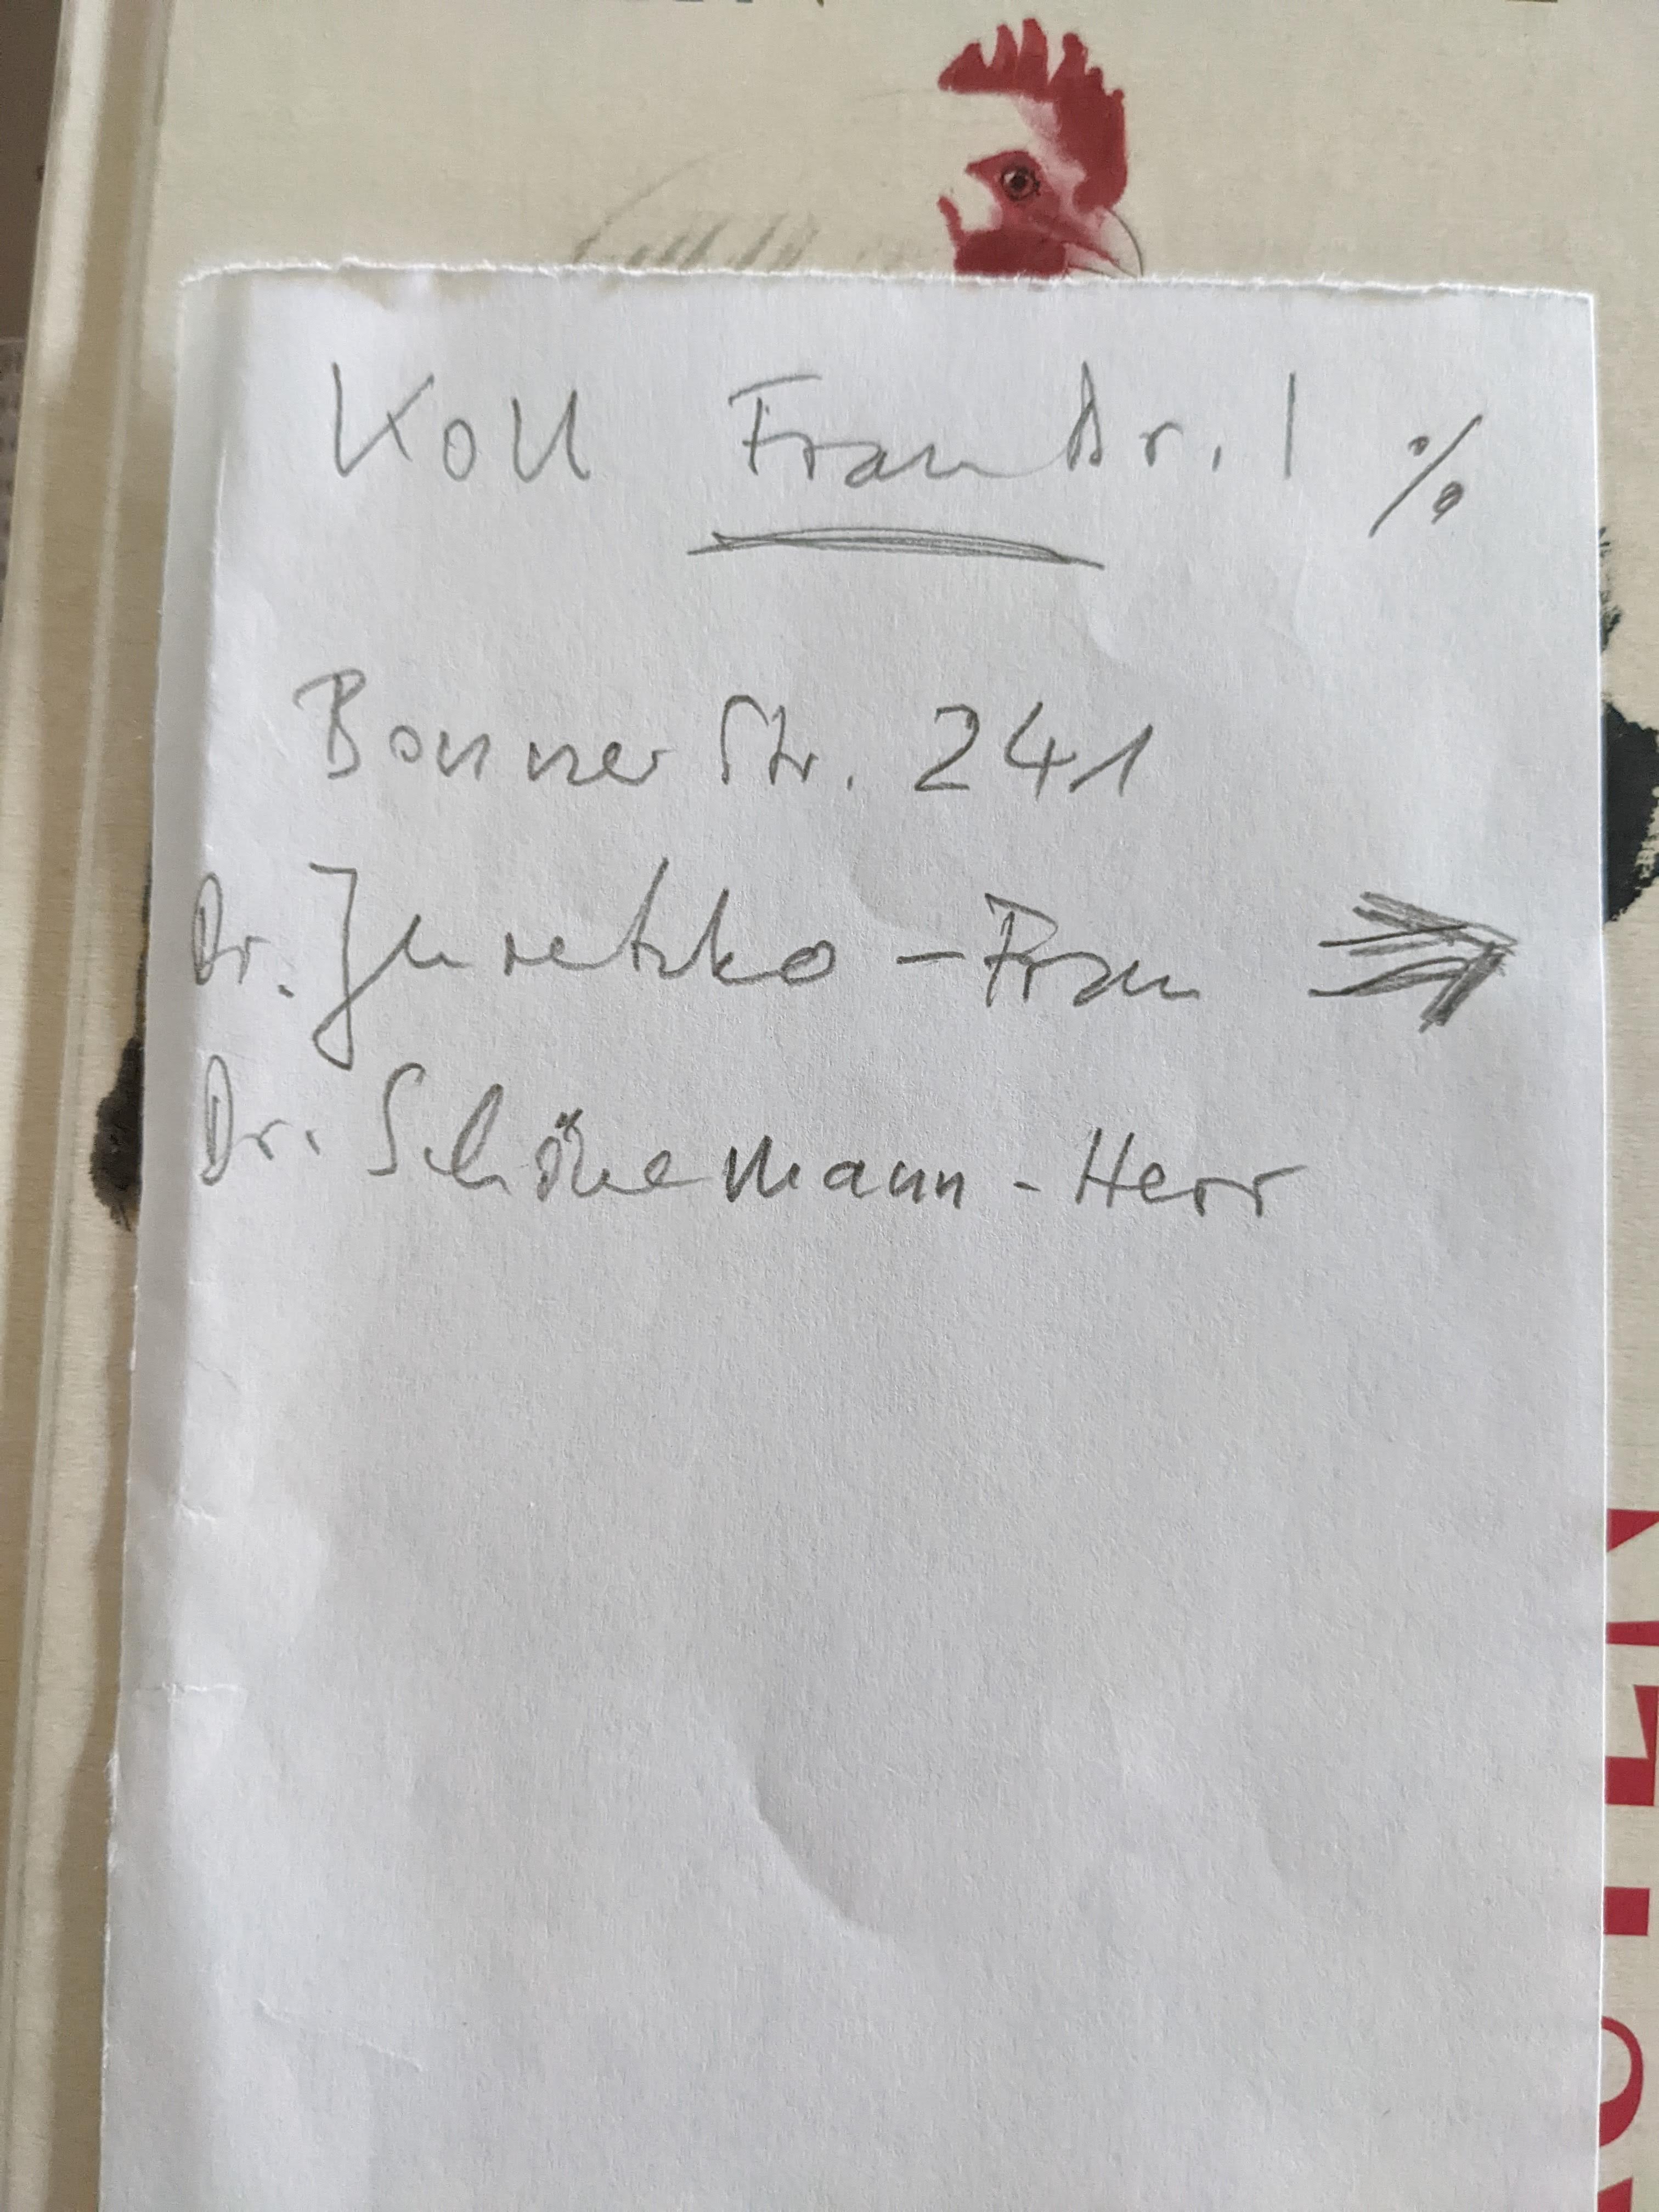 Koll Frau Dr. ! %
Bonner Str. 241
Dr. Juretzko - Frau
Dr. Schönemann - Herr